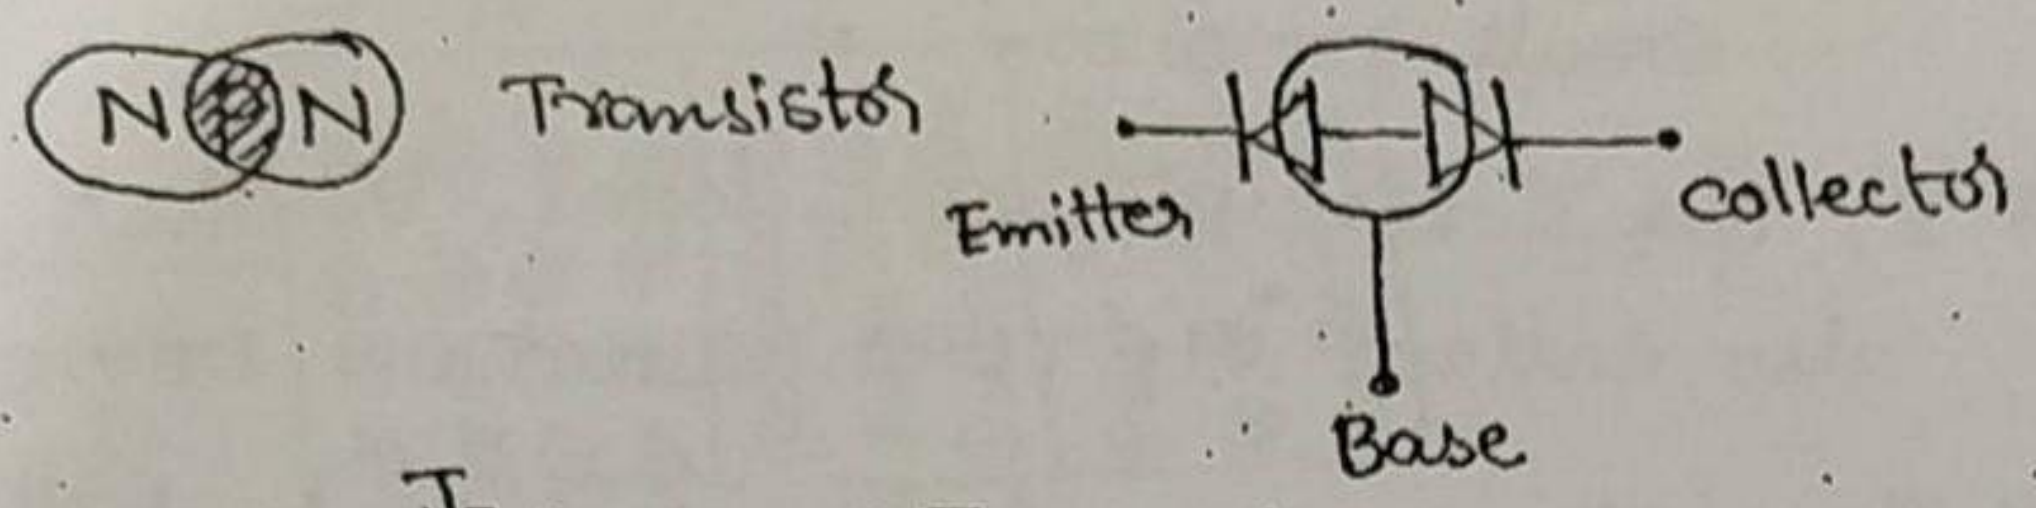 N N Transistor
Emitter
collector
Base